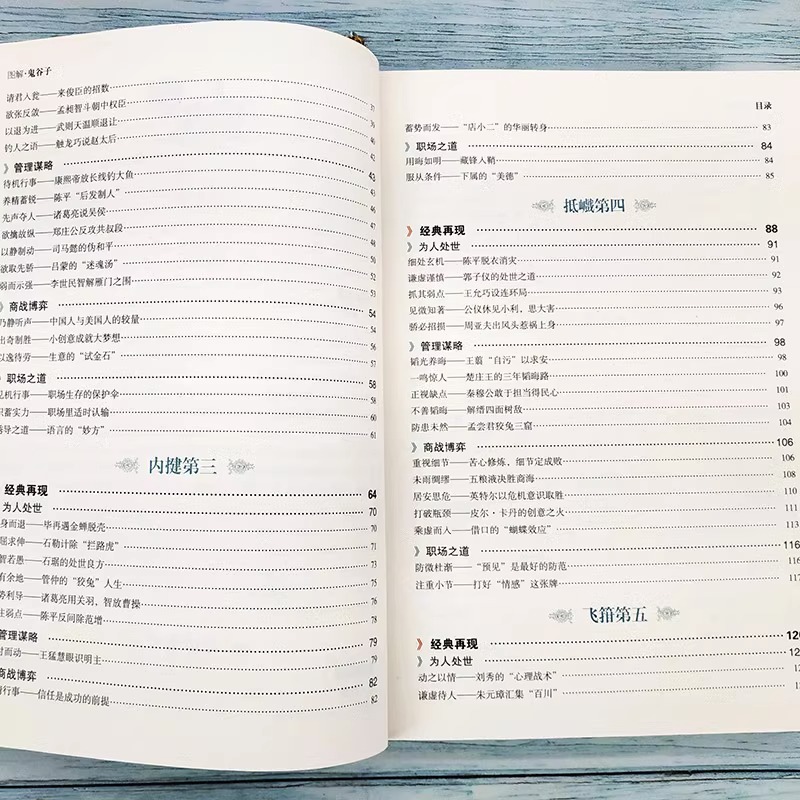 图解·鬼谷子
请君入瓮——来俊臣的招数 37
欲张反敛——孟昶智斗朝中权臣
以退为进——武则天温顺退让
钓人之语——触龙巧说赵太后 42
》管理谋略 43
待机行事——康熙帝放长线钓大鱼
养精蓄锐——陈平“后发制人”
先声夺人——诸葛亮说吴侯 46
欲擒故纵——郑庄公反攻共叔段
以静制动——司马懿的伪和平 50
欲取先骄——吕蒙的“迷魂汤” 52
弱而示强——李世民智解雁门之围 53
》商战博弈 54
乃静听声——中国人与美国人的较量 54
出奇制胜——小创意成就大梦想 56
以逸待劳——生意的“试金石” 57
》职场之道 58
见机行事——职场生存的保护伞 58
积蓄实力——职场里适时认输 60
诱导之道——语言的“妙方” 61
内揵第三
经典再现 64
为人处世 70
身而退——毕再遇金蝉脱壳 70
屈求伸——石勒计除“拦路虎” 71
智若愚——石琚的处世良方 73
有余地——管仲的“狡兔”人生 75
势利导——诸葛亮用关羽，智放曹操 76
住弱点——陈平反间除范增 78
管理谋略 79
时而动——王猛慧眼识明主 79
商战博弈 82
行事——信任是成功的前提 82
目录
蓄势而发——“店小二”的华丽转身 83
》职场之道 84
用晦如明——藏锋入鞘 84
服从条件——下属的“美德” 85
抵巇第四
》经典再现 88
》为人处世 91
细处玄机——陈平脱衣消灾 91
谦虚谨慎——郭子仪的处世之道 92
抓其弱点——王允巧设连环局 93
见微知著——公仪休见小利，思大害 96
骄必招损——周亚夫出风头惹祸上身 97
》管理谋略 98
韬光养晦——王翦“自污”以求安 98
一鸣惊人——楚庄王的三年韬晦路 100
正视缺点——秦穆公敢于担当得民心 101
不善韬晦——解缙四面树敌 103
防患未然——孟尝君狡兔三窟 104
》商战博弈 106
重视细节——苦心修炼，细节定成败 106
未雨绸缪——五粮液决胜商海 108
居安思危——英特尔以危机意识取胜 110
打破瓶颈——皮尔·卡丹的创意之火 111
乘虚而入——借口的“蝴蝶效应” 113
》职场之道 116
防微杜渐——“预见”是最好的防范 116
注重小节——打好“情感”这张牌 117
飞箝第五
》经典再现 12
》为人处世 12
动之以情——刘秀的“心理战术”
谦虚待人——朱元璋汇集“百川”